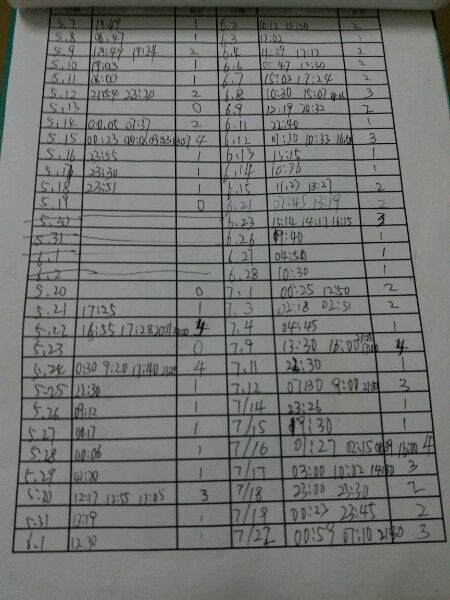 5.7 19:09 1 6.2 10:12 15:30 2
5.8 06:47 1 6.3 17:02 1
5.9 18:49 19:34 2 6.4 11:29 17:13 2
5.10 19:03 1 6.6 00:47 12:30 2
5.11 06:00 1 6.7 15:03 17:24 2
5.12 21:54 23:30 2 6.8 10:30 15:07 3
5.13 0 6.9 12:19 20:32 2
5.14 00:05 07:37 2 6.11 22:40 1
5.15 00:23 4 6.12 07:30 10:33 3
5.16 23:55 1 6.13 15:15 1
5.17 23:30 1 6.14 10:36 1
5.18 23:51 1 6.15 11:27 13:27 2
5.19 0 6.21 07:45 13:19 2
5.30 6.23 13:14 14:17 16:15 3
5.31 6.26 09:40 1
6.1 6.27 04:50 1
6.2 6.28 10:30 1
5.20 0 7.1 00:25 12:50 2
5.21 17:25 1 7.3 02:18 02:51 2
5.22 16:55 17:28 4 7.4 04:45 1
5.23 0 7.9 13:30 16:00 4
5.24 0:30 9:20 17:40 4 7.11 22:30 1
5.25 12:30 1 7.12 07:30 9:00 21:30 3
5.26 09:12 1 7/14 23:26 1
5.27 00:17 1 7/15 19:30 1
5.28 00:06 1 7/16 01:27 02:15 16:00 4
5.29 02:20 1 7/17 03:00 10:02 14:30 3
5.30 12:17 12:55 13:05 3 7/18 23:00 23:30 2
5.31 13:19 1 7/19 00:27 23:45 2
6.1 12:30 1 7/22 00:59 07:10 21:30 3